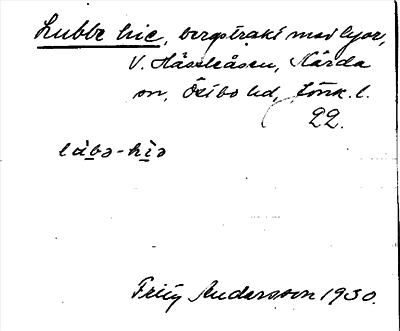 Lubbe hie, bergstrakt med ljor,
V. Hässleåsen, Kärda
sn, Östbo hd, Jönk. l.
22.
làbə-hìə
Fritz Andersson 1930.